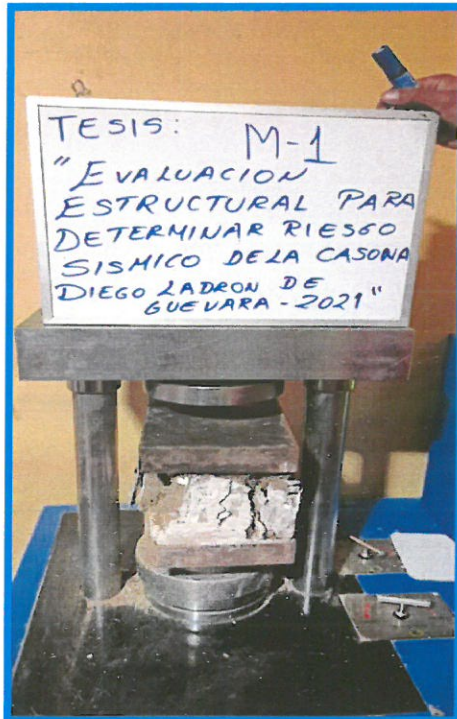 TESIS: M-1
"EVALUACION
ESTRUCTURAL PARA
DETERMINAR RIESGO
SISMICO DE LA CASONA
DIEGO LADRON DE
GUEVARA - 2021"